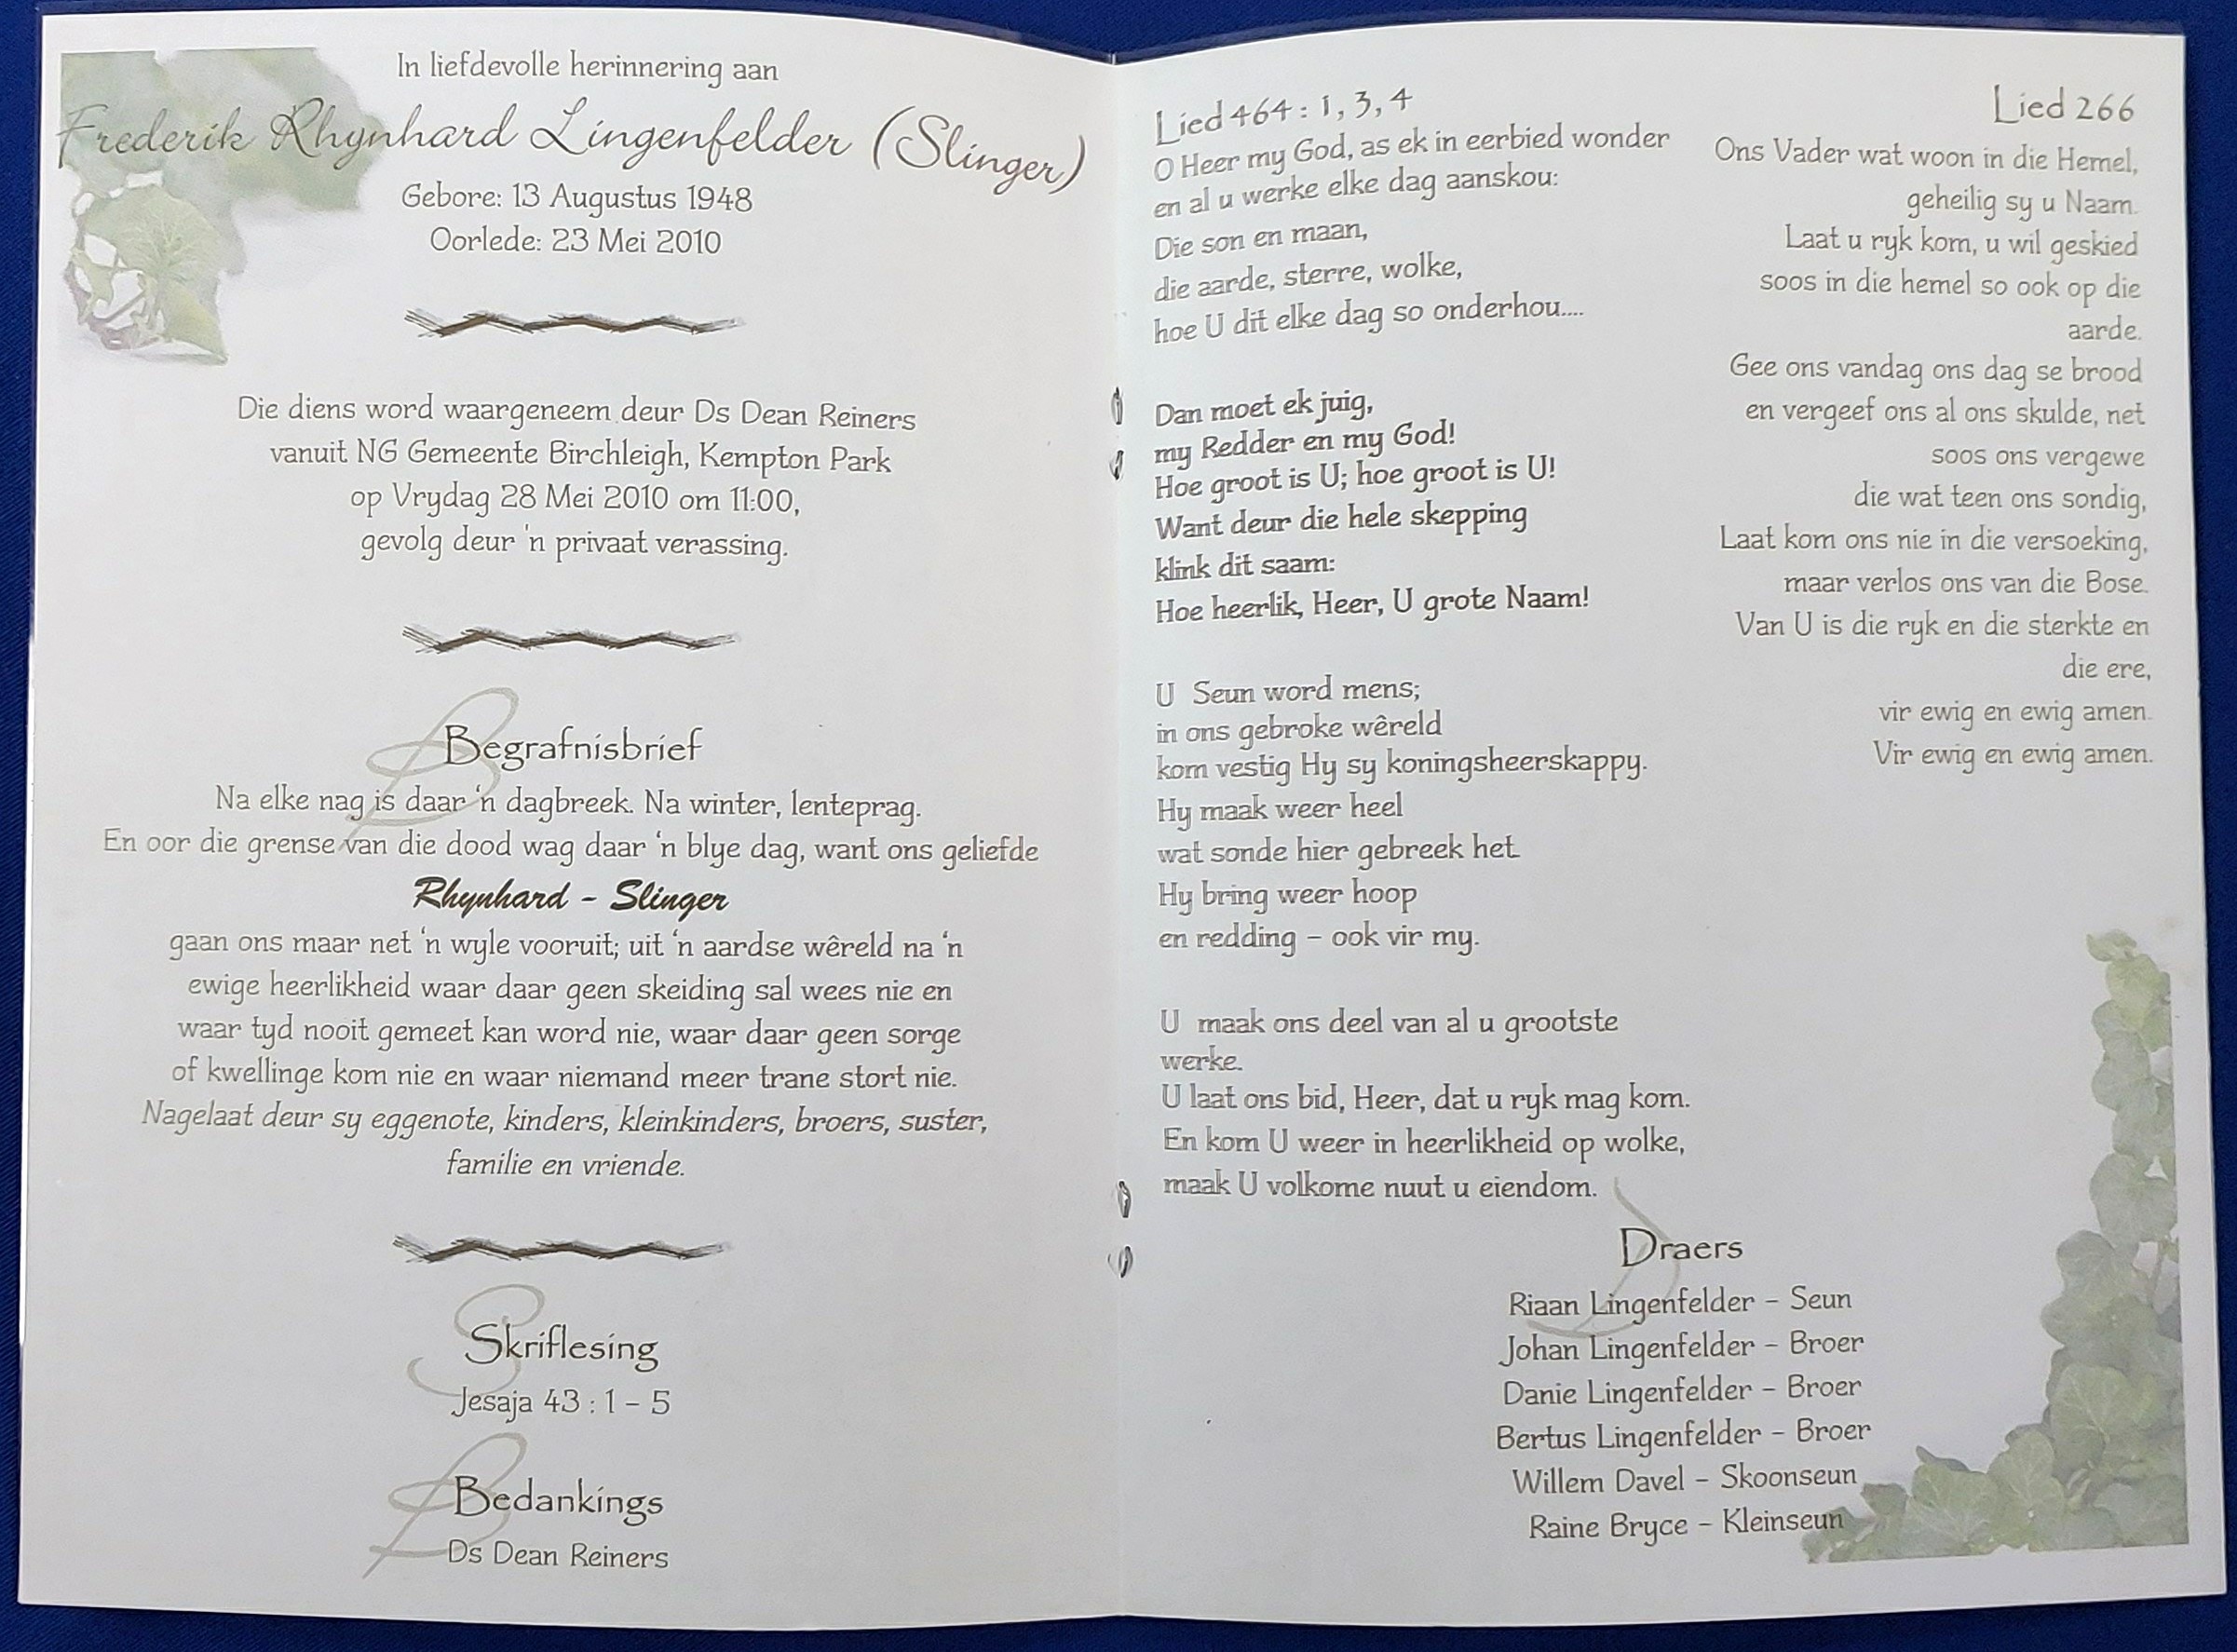 In liefdevolle herinnering aan
Frederik Rhynhard Lingenfelder (Slinger)
Gebore: 13 Augustus 1948
Oorlede: 23 Mei 2010
Die diens word waargeneem deur Ds Dean Reiners
vanuit NG Gemeente Birchleigh, Kempton Park
op Vrydag 28 Mei 2010 om 11:00,
gevolg deur 'n privaat verassing.
Begrafnisbrief
Na elke nag is daar 'n dagbreek. Na winter, lenteprag.
En oor die grense van die dood wag daar 'n blye dag, want ons geliefde
Rhynhard - Slinger
gaan ons maar net 'n wyle vooruit; uit 'n aardse wêreld na 'n
ewige heerlikheid waar daar geen skeiding sal wees nie en
waar tyd nooit gemeet kan word nie, waar daar geen sorge
of kwellinge kom nie en waar niemand meer trane stort nie.
Nagelaat deur sy eggenote, kinders, kleinkinders, broers, suster,
familie en vriende.
Skriflesing
Jesaja 43 : 1 – 5
Bedankings
Ds Dean Reiners
Lied 464 : 1, 3, 4
O Heer my God, as ek in eerbied wonder
en al u werke elke dag aanskou:
Die son en maan,
die aarde, sterre, wolke,
hoe U dit elke dag so onderhou....
Dan moet ek juig,
my Redder en my God!
Hoe groot is U; hoe groot is U!
Want deur die hele skepping
klink dit saam:
Hoe heerlik, Heer, U grote Naam!
U Seun word mens;
in ons gebroke wêreld
kom vestig Hy sy koningsheerskappy.
Hy maak weer heel
wat sonde hier gebreek het.
Hy bring weer hoop
en redding – ook vir my.
U maak ons deel van al u grootste
werke.
U laat ons bid, Heer, dat u ryk mag kom.
En kom U weer in heerlikheid op wolke,
maak U volkome nuut u eiendom.
Lied 266
Ons Vader wat woon in die Hemel,
geheilig sy u Naam.
Laat u ryk kom, u wil geskied
soos in die hemel so ook op die
aarde.
Gee ons vandag ons dag se brood
en vergeef ons al ons skulde, net
soos ons vergewe
die wat teen ons sondig,
Laat kom ons nie in die versoeking,
maar verlos ons van die Bose.
Van U is die ryk en die sterkte en
die ere,
vir ewig en ewig amen.
Vir ewig en ewig amen.
Draers
Riaan Lingenfelder – Seun
Johan Lingenfelder – Broer
Danie Lingenfelder – Broer
Bertus Lingenfelder – Broer
Willem Davel – Skoonseun
Raine Bryce – Kleinseun